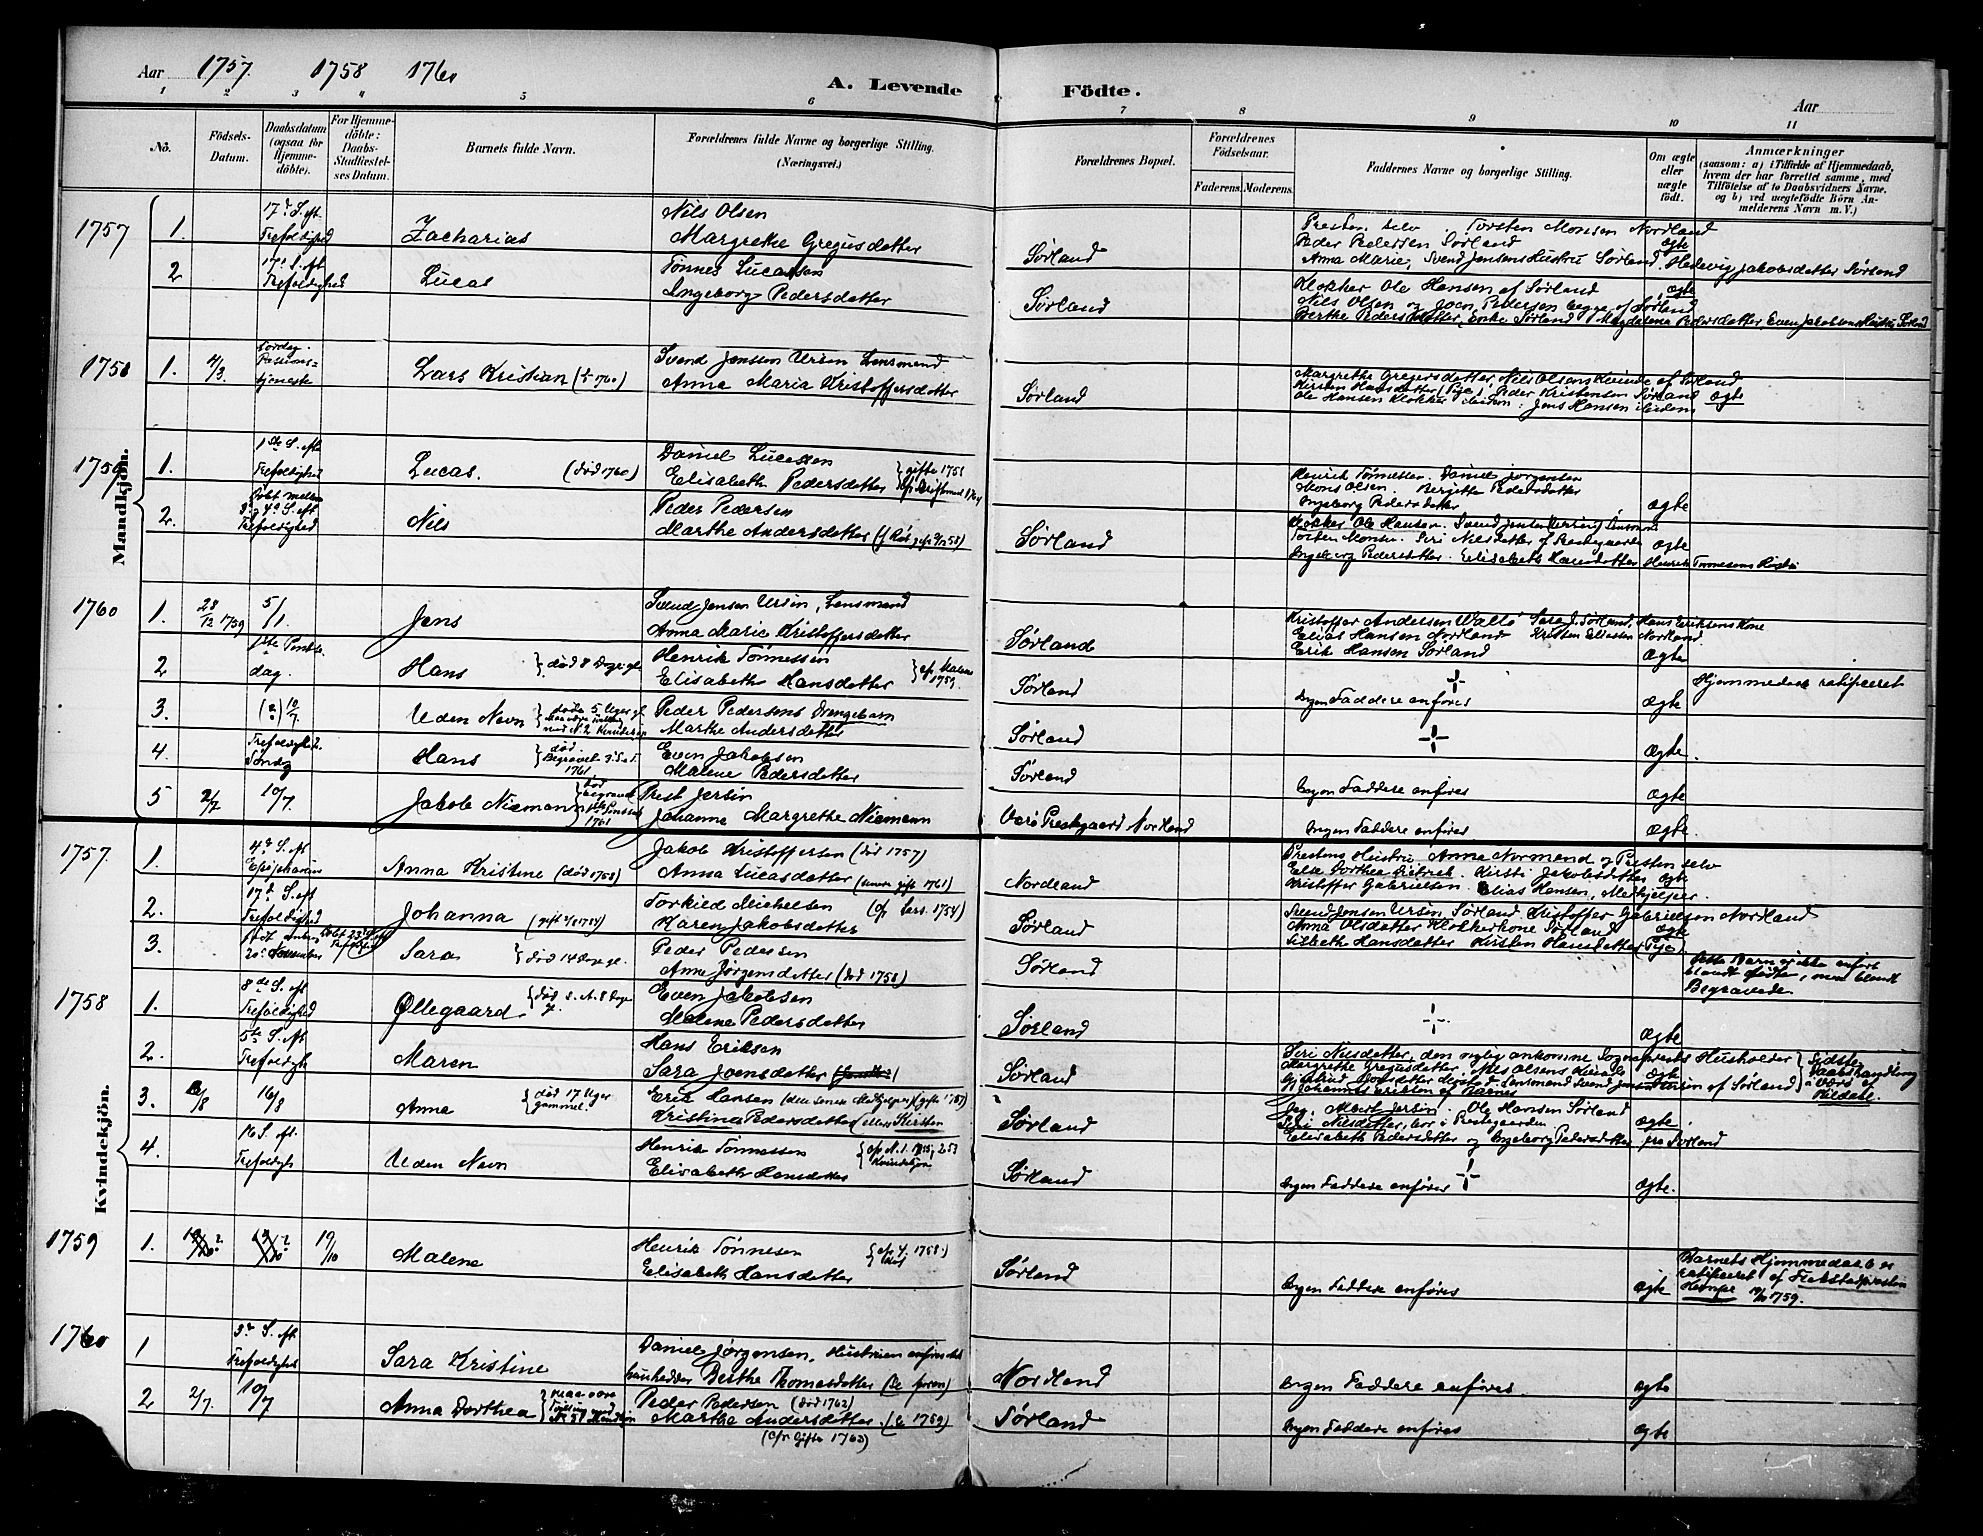 Aar 1757. 1758 1760
A. Levende Födte.
Aar
1 2 3 4 5 6 7 8 9 10 11
Nô.
Födsels-Datum.
Daabsdatum (ogsaa for Hjemme-döbte).
For Hjemme-döbte: Daabs-Stadfæstel-ses Datum.
Barnets fulde Navn.
Forældrenes fulde Navne og borgerlige Stilling. (Næringsvei.)
Forældrenes Bopæl.
Forældrenes Födselsaar.
Faderens. Moderens.
Faddernes Navne og borgerlige Stilling.
Om ægte eller uægte födt.
Anmærkninger
(saasom: a) i Tilfælde af Hjemmedaab, hvem der har forrettet samme, med Tilföielse af to Daabsvidners Navne, og b) ved uægtefödte Börn An-melderens Navn m. V.)
Mandkjön.
1757
1. 17de S. eft. Trefoldighed Zacharias Nils Olsen
Margrethe Gregusdatter Sørland Presten selv Torsten Monsen Nordland
Peder Pedersen Sørland ægte
Anna Marie, Svend Jensens Hustru Sørland. Hedevig Jakobsdatter Sørland
2 17de S. eft. Trefoldighed Lucas Tönnes Lucassen
Ingeborg Pedersdatter Sørland Klokker Ole Hansen af Sørland ægte
Nils Olsen og Joen Pedersen begge af Sørland
Berthe Pedersdatter, Enke Sørland Magdalena Pedersdatter Even Jakobsens Hustru Sørland
1758
1. 4/3 Lordag. Passions-tjeneste Lars Kristian († 1760) Svend Jenssen Ursin Lensmand
Anna Maria Kristoffersdatter Sørland Margrethe Gregersdatter, Nils Olsens Kvinde af Sørland
Kirsten Hansdatter (Pige) Peder Kristensen Sørland ægte
Ole Hansen Klokker ibidem: Jens Hansen ibidem
1759
1. 1ste S. efter Trefoldighed Lucas. (død 1760) Daniel Lucassen
Elisabeth Pedersdatter } gifte 1751 Henrik Tønnessen Daniel Jörgensen
Mons Olsen. Birgitte Pedersdatter
Ingeborg Pedersdatter ægte
2. Døbt mellem 3' og 4de S. eft Trefoldighed Nils Peder Pedersen
Marthe Andersdatter Sørland Klokker Ole Hansen. Svend Jensen Lensmand
Torsten Monsen. Siri Nilsdatter af Prestegaarden ægte
Ingeborg Pedersdatter. Elisabeth Hansdatter Henrik Tønnesens Hustru
1760
1. 28/12 1759 5/1 Jens Svend Jensen Ursin, Lensmand
Anna Marie Kristoffersdatter Sørland Kristoffer Andersen Sara J. Sørland, Hans Eriksens Kone
Elias Hansen Nordland Kristen Nordland
Erik Hansen Sørland ægte
2 1ste Pintse-dag. Hans } død 8 Dage gl. Henrik Tönnessen
Elisabeth Hansdatter } cfr. Malene 1759. Sørland Ingen Faddere anføres ægte Hjemmedaab ratificeret
3. 10/7 Uden Navn } døde 5 Uger gl. Peder Pedersens Drengebarn
Marthe Andersdatter Sørland ægte.
4. Trefoldigheds Søndag Hans } død Begravet 1761 Even Jakobsen
Malene Pedersdatter Sørland Ingen Faddere anføres ægte
5 2/7 10/7. Jakob Niemann } død begravet 1761 Prest Jersin
Johanne Margrethe Niemann Værø Prestegaard Nordland Ingen Faddere anføres ægte.
Kvindekjön.
1757
1. 4de S. eft Epiphanias Anna Kristine (død 1758) Jakob Kristoffersen (død 1757)
Anna Lucasdatter (senere gift 1761) Nordland Prestens Hustru Anna Normand og Presten selv
Else Dorthea Kirsti Jakobsdatter ægte
Kristoffer Gabrielsen. Elias Hansen, Medhjelper
2. 17de S. eft. Trefoldighed Johanna Torkild Michelsen (cfr Lars. 1754)
Karen Jakobsdatter Sørland Svend Jensen Ursin Sørland. Kristoffer Gabrielsen Nordland
Anna Olsdatter Klokkerkone Sørland ægte
Lisbeth Hansdatter Kirsten Hansdatter (Pige)
3. født 20de November Sara } død 14 Dage gl. Peder Pedersen
Anne Jørgensdatter (død 1758) Sørland Dette Barn er ikke anført blandt fødte, men blandt Begravede.
1758
1. 8de S. eft Trefoldighed Øllegaard Even Jakobsen
Malene Pedersdatter Sørland ægte
2. 5te S. eft Trefoldigh Maren Hans Eriksen
Sara Joensdatter Sørland Siri Nilsdatter, den nylig ankomne Sogneprests Husholder
Margrethe Gregusdatter, Nils Olsens Kvinde ægte
Gjertrud Joensdatter Lensmand Svend Jensen Ursin af Sørland
Johannes Eriksen af Barnes
} Sidste Daabshandling i Værø af Bildal.
3. 13/8 16/8 Anna } død 17 Uger gammel. Erik Hansen
Kristina Pedersdatter eller Kirsten Sørland Jeg, Albert Jersin. Ole Hansen Sørland
Siri Nilsdatter, bor i Prestegaarden ægte
Elisabeth Pedersdatter og Ingeborg Pedersdatter fra Sørland
4. 16 S. eft. Trefoldigh Uden Navn Henrik Tönnessen
Elisabeth Hansdatter Sørland Ingen Faddere anføres ægte.
1759
1. 19/10? 19/10? 19/10 Malene Henrik Tønnesen } cfr. 4. 1758.
Elisabeth Hansdatter Sørland Ingen Faddere anføres ægte Barnets Hjemmedaab er ratificeret af Flakstadpresten 19/10 1759.
1760
1 3de S. eft. Trefoldighed Sara Kristine Daniel Jørgensen. Hustruen anføres ikke
hun hedder Berthe Thomasdatter (se foran) Nordland Ingen Faddere anføres. ægte
2 2/7. 10/7 Anna Dorthea Peder Pedersen (død 1762)
Marthe Andersdatter. (se 1759)
(cfr. Gifte 1763) Sørland Ingen Faddere anføres ægte